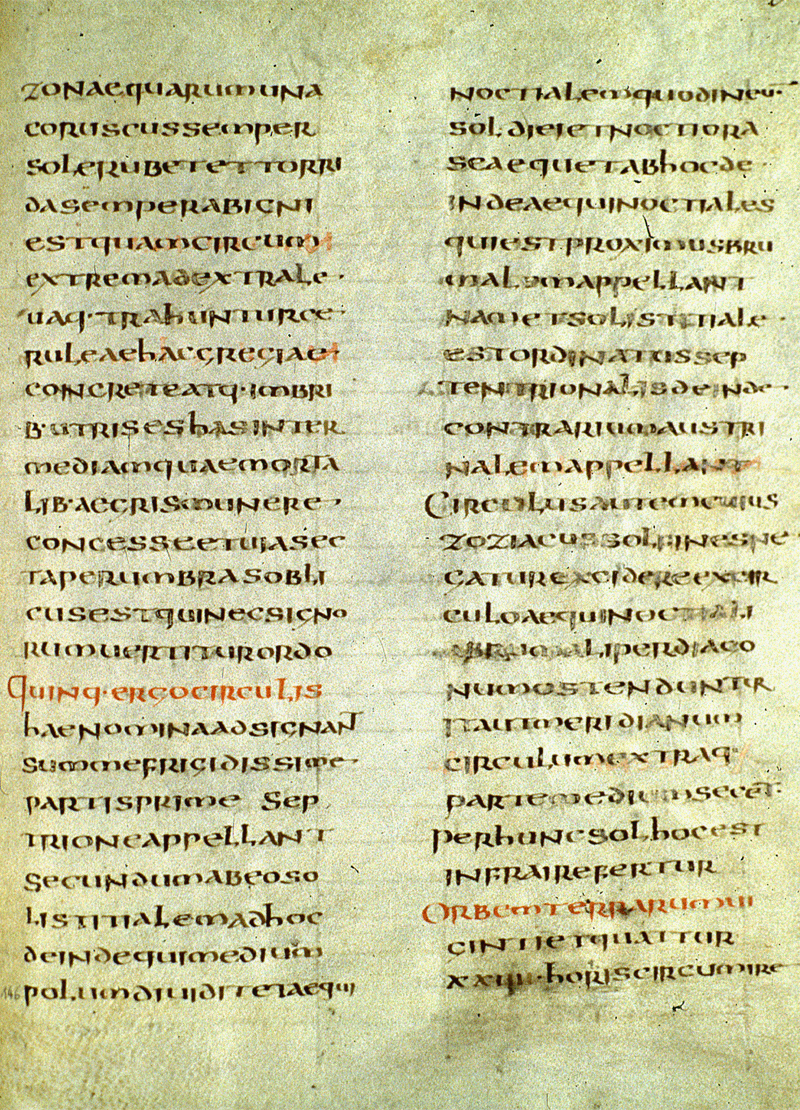 zonaequarumuna
coruscussemper
solerubetettorri
dasemperabigni
estquamcircum
extremadextrale·
uaq·trahunturce·
ruleaehacgreciae
concreteatq·imbri
b·utriseshasinter
mediamquaemorta
lib·aegrismunere·
concesseetuiasec
taperumbrasobli
cusestquinecsigno
rumuertiturordo
quinq·ergocirculis
haenominaadsignant
summefrigidissime·
partisprime Sep
trioneappellant
secundumabeoso
listitialemadhoc
deindequimedium
polumdiuiditetaequi
noctialemquodineu·
soldieietnoctiora
seaequetabhocde·
indeaequinoctiales
quiestproximusbru
malemappellant
nametsolistitiale·
estordinatussep
tentrionalisdeinde·
contrariumaustri
nalemappellant
Circulusautemeius
zoziacussolfinesne
gaturexcidereexcir
culoaequinoctiali
aliperdiaco
numostenduntur
itautmeridianum
circulumextraq
partemediumsecet·
perhuncsolhocest
infrairefertur
Orbemterrarumui
gintietquattur
xxiiii·horiscircumire